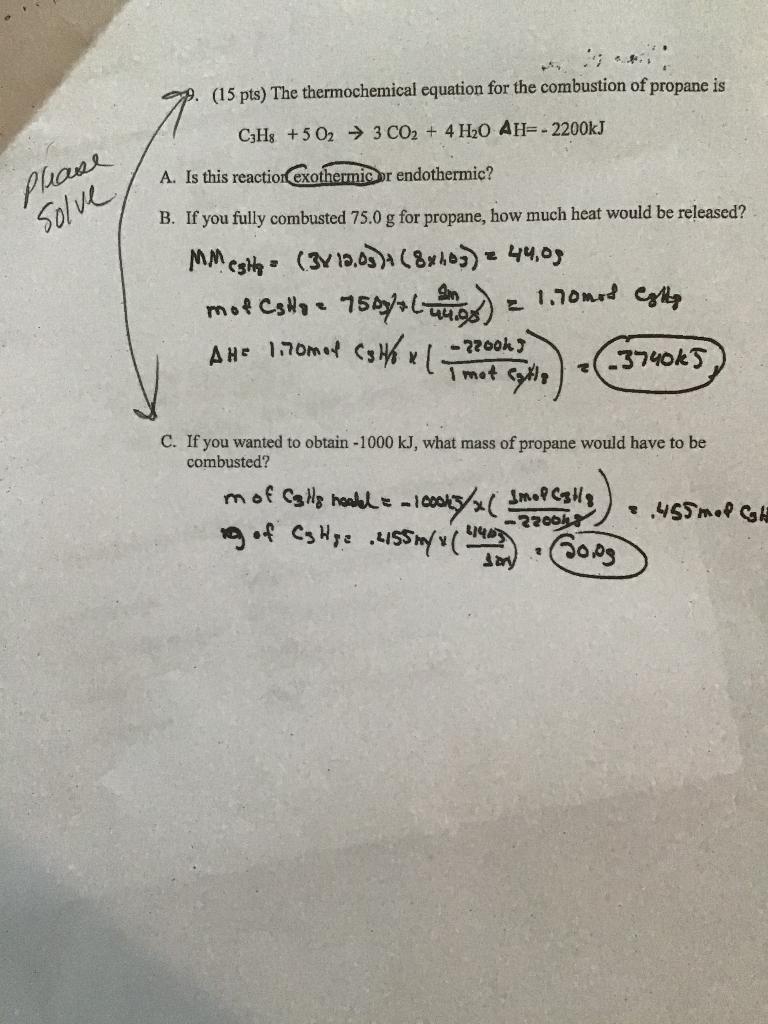 9. (15 pts) The thermochemical equation for the combustion of propane is
C3H8 + 5 O2 → 3 CO2 + 4 H2O ΔH= - 2200kJ
Please
Solve
A. Is this reaction exothermic or endothermic?
B. If you fully combusted 75.0 g for propane, how much heat would be released?
MM C3H8 = (3x12.0g)+(8x1.0g) = 44.0g
mol C3H8 = 75.0g x (1m/44.0g) = 1.70mol C3H8
ΔH= 1.70mol C3H8 x (-2200kJ/1 mol C3H8) = -3740kJ
C. If you wanted to obtain -1000 kJ, what mass of propane would have to be
combusted?
m of C3H8 needed = -1000kJ x (1mol C3H8/-2200kJ) = .455mol C3H
g of C3H8 = .455m x (44.0g/1m) = 20.0g